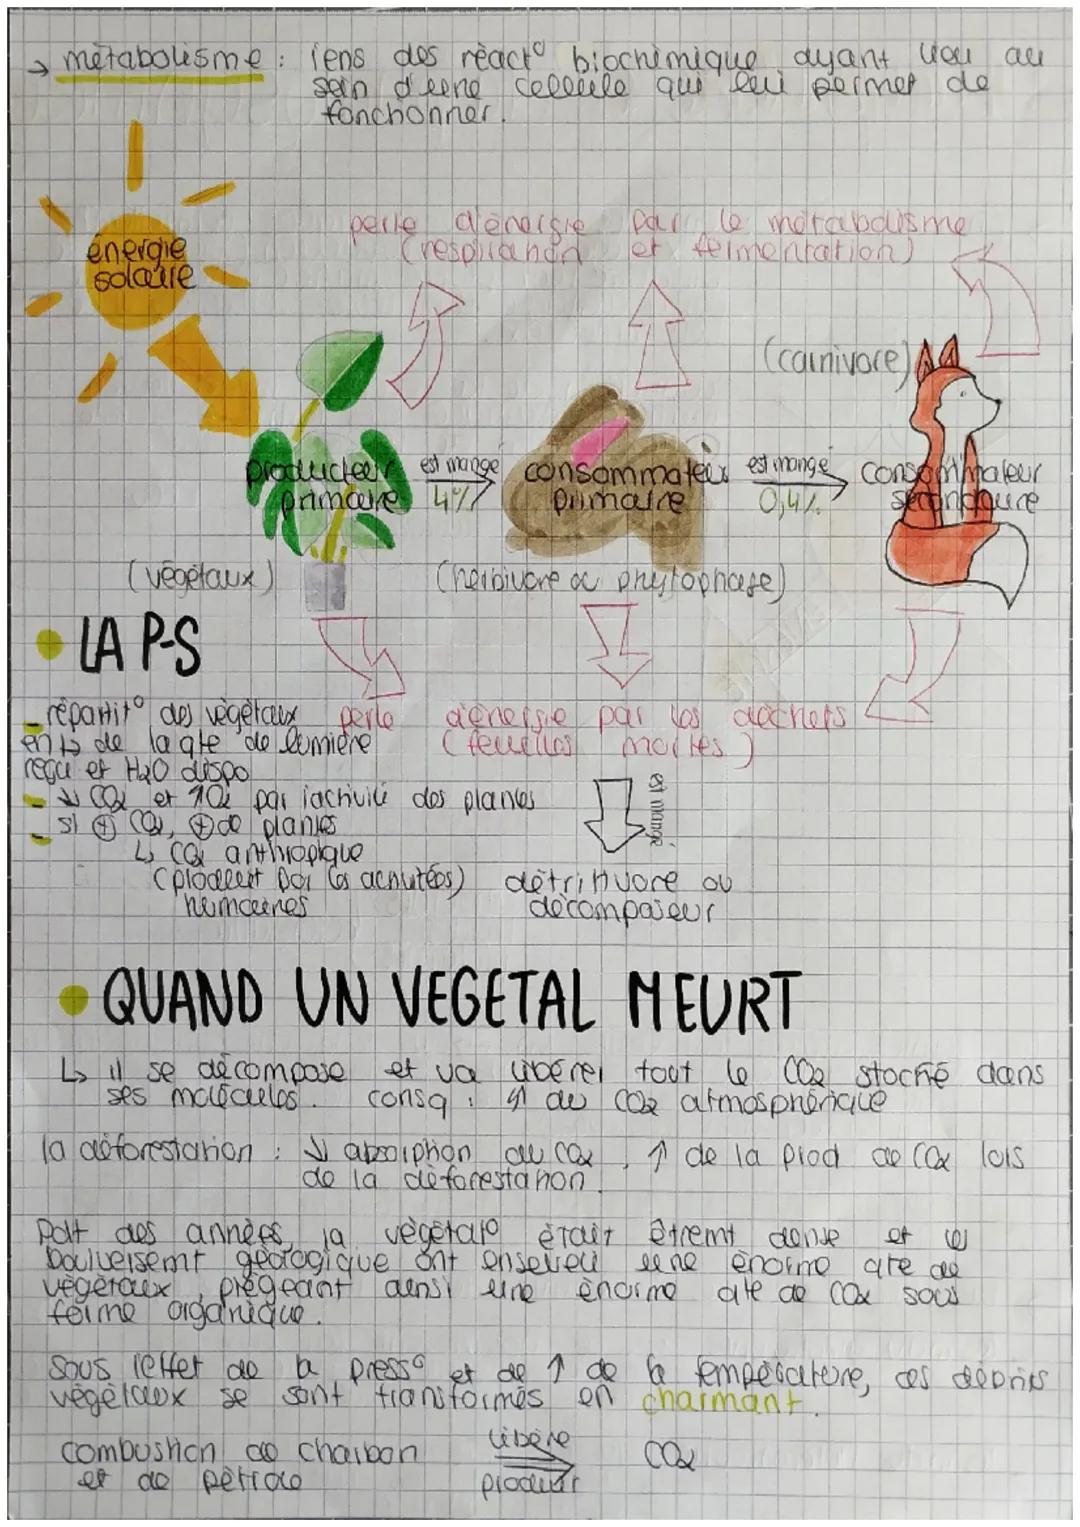 → métabolisme : iens des réact° biochimique ayant lieu au
sein d'une cellule qui lui permet de
fonctionner.
énergie
solaire
perte d'énergie par le métabolisme
(respiration et fermentation)
(carnivore)
producteur
primaire
est mangé
4%
consommateur
primaire
est mangé
0,4%
consommateur
secondaire
(végétaux)
(herbivore ou phytophage)
• LA P-S
- répartit° des végétaux
en de la qte de lumière
reçu et H2O dispo
perte d'énergie par les déchets
(feuilles mortes)
- ↘ CO2 et ↑O2 par l'activité des plantes
- si ⊕ CO2, ⊕ de plantes
↳ CO2 anthropique
(produit par les activitées)
humaines
est mangé
détritivore ou
décomposeur
• QUAND UN VEGETAL MEURT
↳ il se décompose et va libérer tout le CO2 stocké dans
ses molécules. consq : ↑ du CO2 atmosphérique
la déforestation : ↘ absorption du CO2, ↑ de la prod de CO2 lors
de la déforestation.
Pdt des années, la végétat° était êtremt dense et les
bouleversemt géologique ont enseveli une énorme qte de
végétaux, piégeant ainsi une énorme qte de CO2 sous
forme organique.
Sous l'effet de la press° et de ↑ de la température, ces débris
végétaux se sont transformés en charmant.
combustion de charbon
et de pétrole
libère
produit
CO2